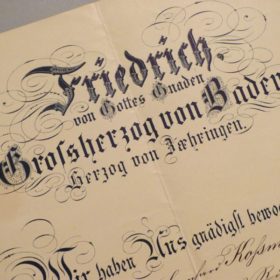 Friedrich,
von Gottes Gnaden
Grossherzog von Baden
Herzog von Zæhringen.
Wir haben Uns gnädigst bewo